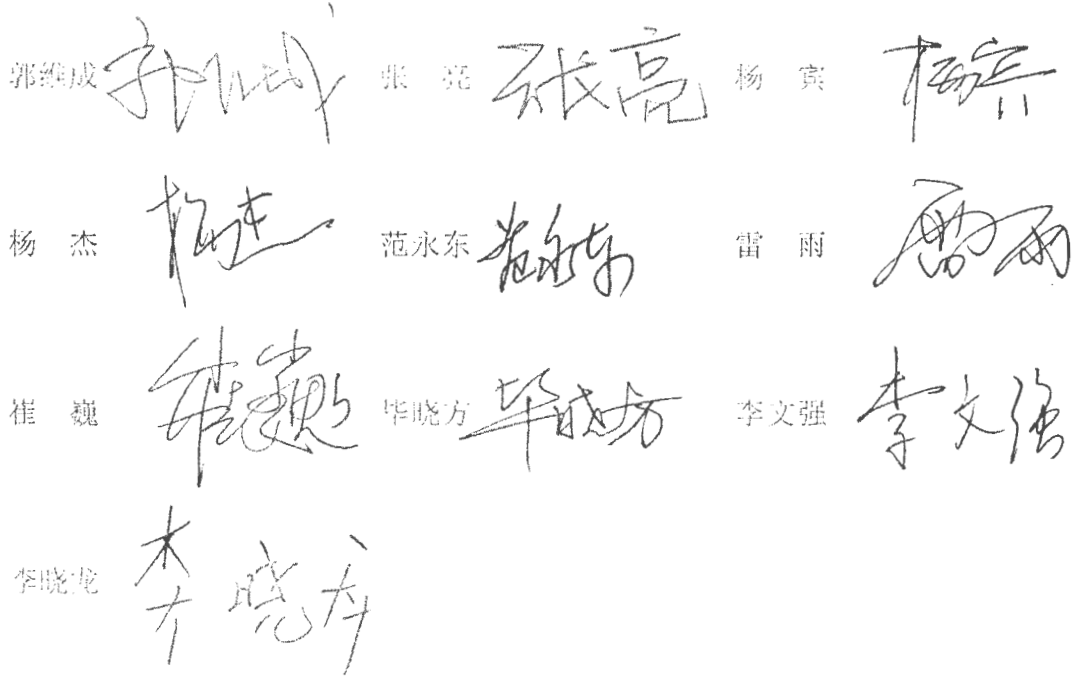 郭维成 郭维成 张 亮 张亮 杨 宾 杨宾
杨 杰 杨杰 范永东 范永东 雷 雨 雷雨
崔 巍 崔巍 毕晓方 毕晓方 李文强 李文强
李晓龙 李晓龙